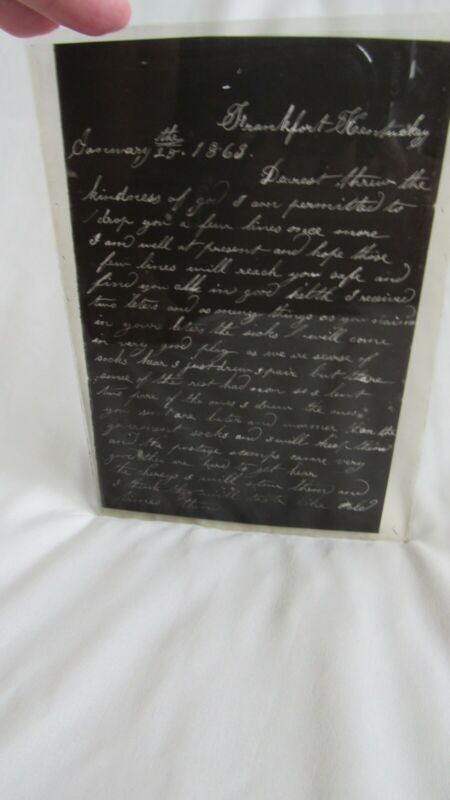 Frankfort Kentucky
January the 25. 1863.
Dearest threw the
kindness of god I am permitted to
drop you a few lines once more
I am well at present and hope those
few lines will reach you safe and
find you all in good helth I received
two leters and as meny things as you
in your leter the socks will come
in very good play as we are scrse of
socks hear I just drew 1 pair but there
some of the rest had non so I lent
two pare of the ones I drew the ones
you sent are beter and warmer than the
goverment socks and I will keep them
and the postage stamps came very
good this we hard to get hear
the I will them and
I think they will the old
times